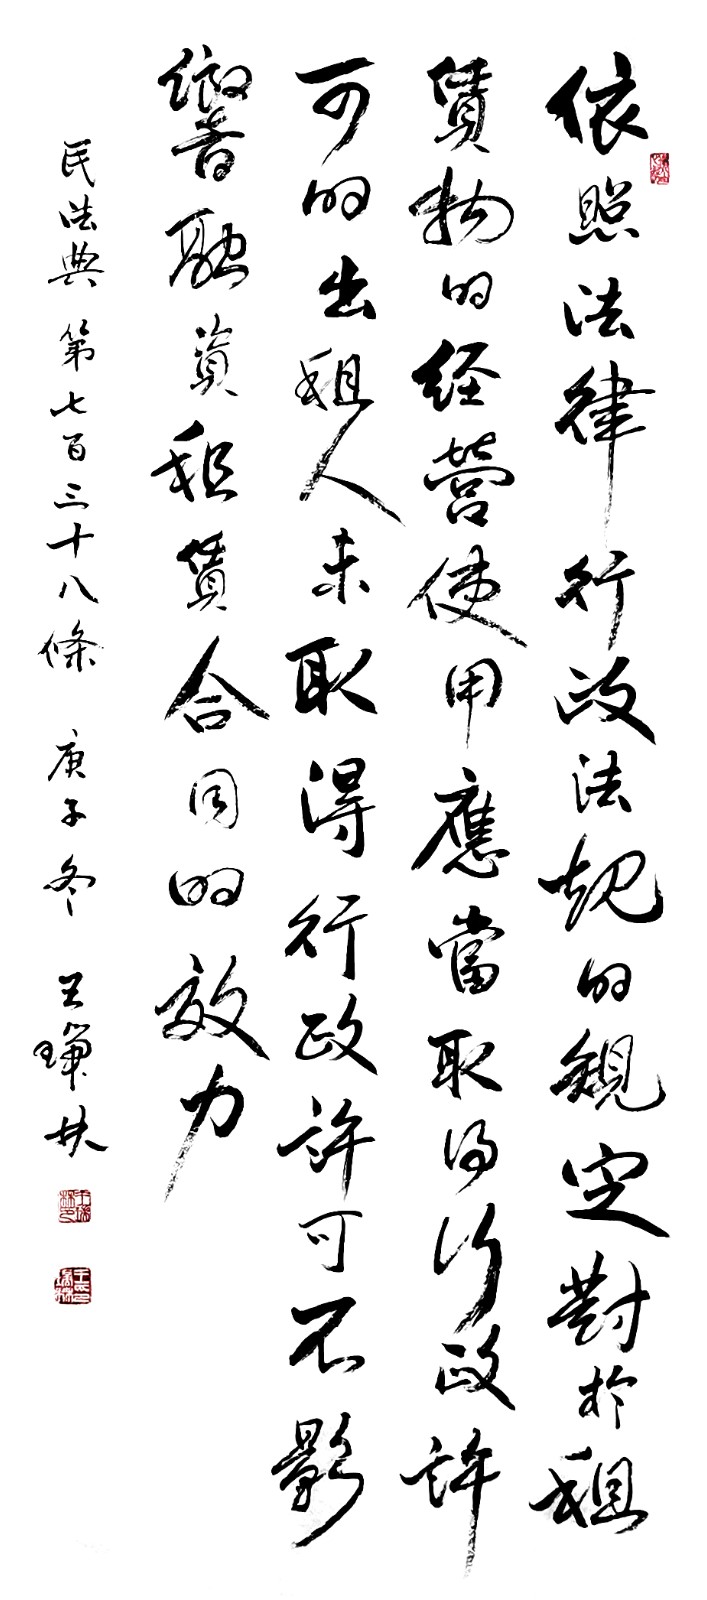 依照法律行政法規的規定對於租
賃物的经營使用應當取得行政許
可的出租人未取得行政許可不影
響融資租賃合同的效力
民法典 第七百三十八條 庚子冬 王